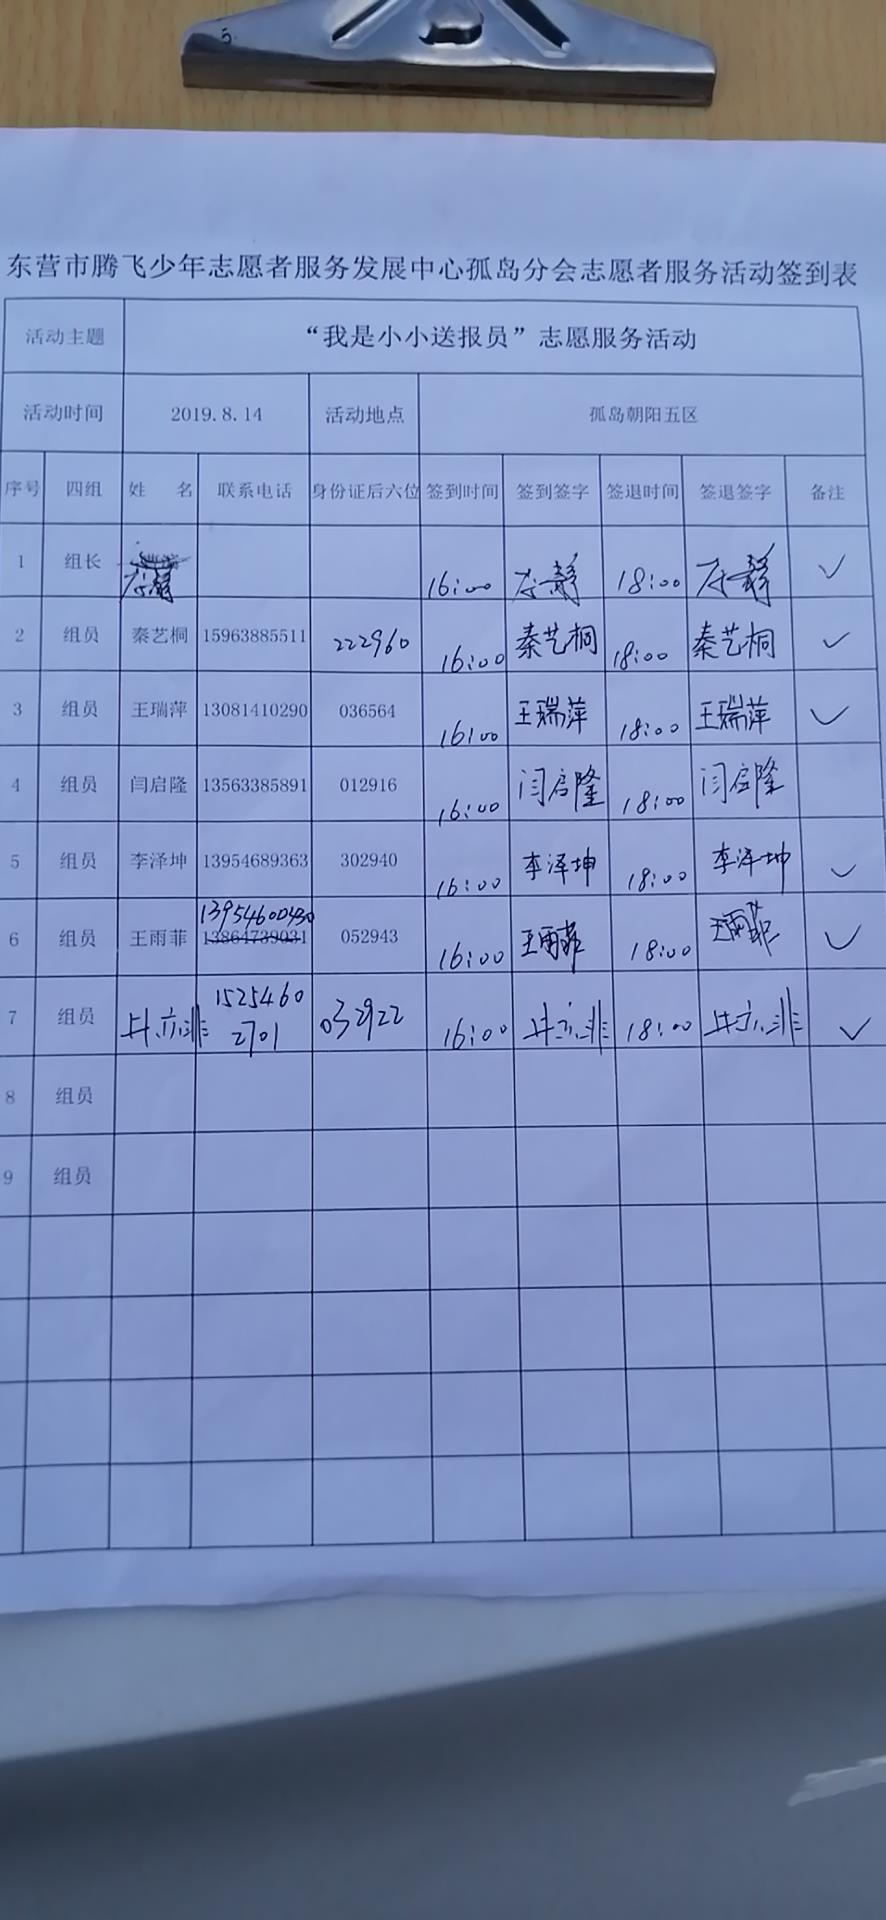 5
东营市腾飞少年志愿者服务发展中心孤岛分会志愿者服务活动签到表
活动主题 “我是小小送报员”志愿服务活动
活动时间 2019.8.14 活动地点 孤岛朝阳五区
序号 四组 姓 名 联系电话 身份证后六位 签到时间 签到签字 签退时间 签退签字 备注
1 组长 16:00 18:00 ✓
2 组员 秦艺桐 15963885511 222960 16:00 秦艺桐 18:00 秦艺桐 ✓
3 组员 王瑞萍 13081410290 036564 16:00 王瑞萍 18:00 王瑞萍 ✓
4 组员 闫启隆 13563385891 012916 16:00 闫启隆 18:00 闫启隆
5 组员 李泽坤 13954689363 302940 16:00 李泽坤 18:00 李泽坤 ✓
13954600430
6 组员 王雨菲 13864739031 052943 16:00 王雨菲 18:00 王雨菲 ✓
1525460
7 组员 2701 032922 16:00 18:00 ✓
8 组员
9 组员